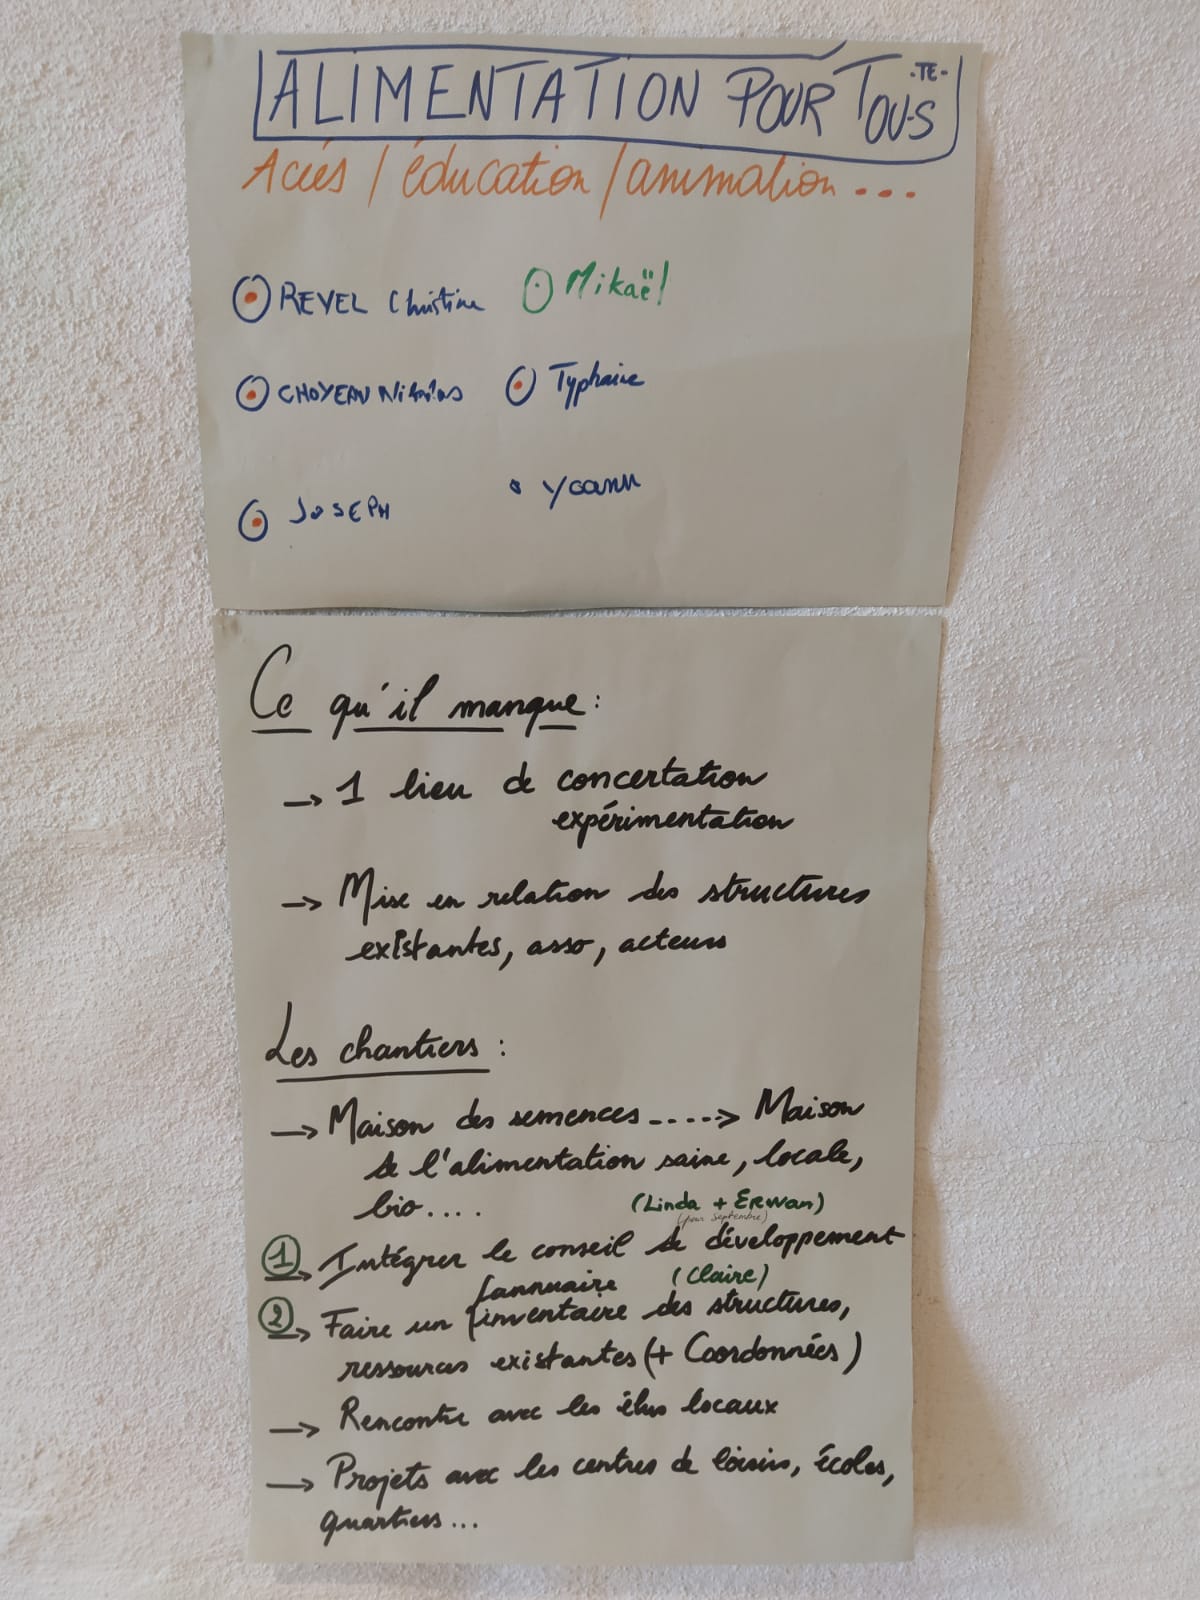 ALIMENTATION POUR TOUS -TE-
Accès / éducation / animation ...
REVEL Christine
Mikaël
CHOYEAU Nikolas
Typhaine
JOSEPH
Yoann
Ce qu'il manque :
→ 1 lieu de concertation
expérimentation
→ Mise en relation des structures
existantes, asso, acteurs
Les chantiers :
→ Maison des semences ----> Maison
de l'alimentation saine, locale,
bio....
(Linda + ERwan)
(pour septembre)
1 → Intégrer le conseil de développement
annuaire (Claire)
2 → Faire un inventaire des structures,
ressources existantes (+ Coordonnées)
→ Rencontre avec les élus locaux
→ Projets avec les centres de loisirs, écoles,
quartiers...